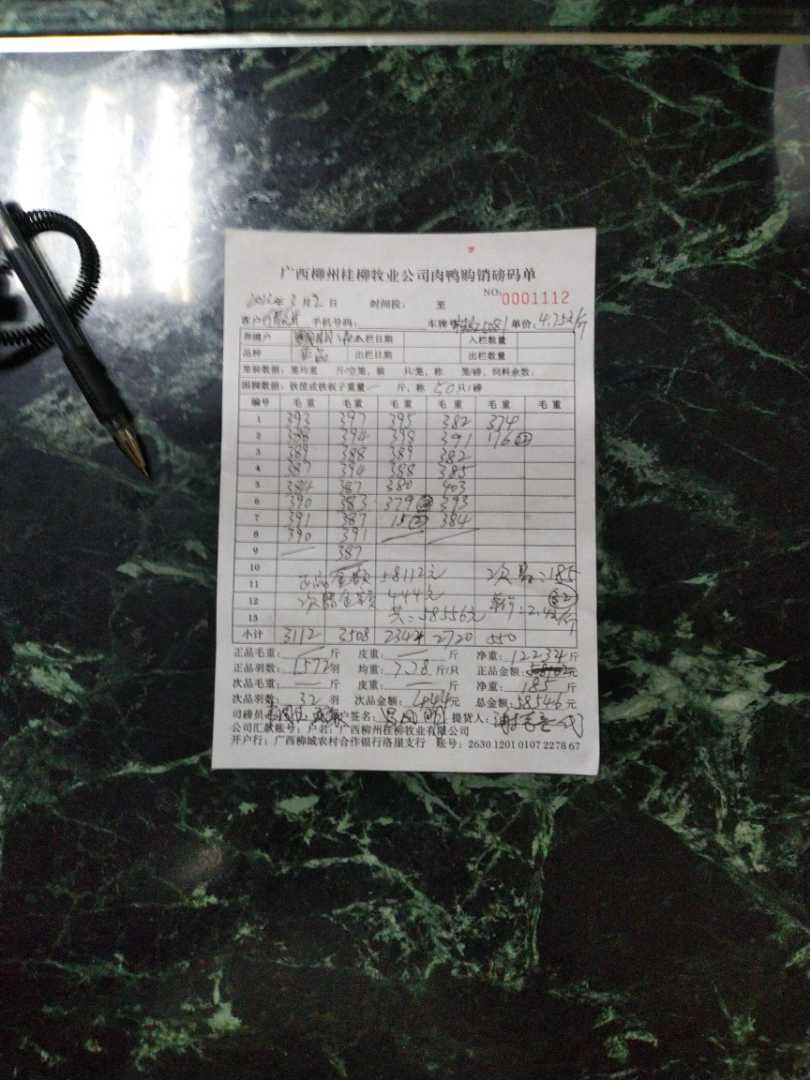 广西柳州桂柳牧业公司肉鸭购销磅码单
NO: 0001112
年3月2日 时间段: 至
客户 手机号码: 车牌号 单价: 4.75元/斤
养殖户 入栏日期 入栏数量
品种 出栏日期 出栏数量
笼装数据: 笼均重 斤/空笼、装 只/笼、称 笼/磅、饲料余数:
捆脚数据: 铁筐或铁板子重量 斤、称 50只/磅
编号 毛重 毛重 毛重 毛重 毛重 毛重
1 393 397 395 382 374
2 388 394 398 391 176
3 389 388 389 382
4 387 394 388 385
5 384 387 380 403
6 390 383 379 393
7 391 387 15 384
8 390 391
9 387
10
11 正品金额 58112元 次品: 185
12 次品金额 444元 单价: 2.4元/斤
13 共: 58556元
小计 3112 3508 2344 2720 550
正品毛重: 斤 皮重: 斤 净重: 12234斤
正品羽数: 1572羽 均重: 7.78斤/只 正品金额: 元
次品毛重: 斤 皮重: 斤 净重: 185斤
次品羽数: 32羽 次品金额: 444元 总金额: 58546元
司磅员: 户签名: 提货人:
公司汇款账号: 户名: 广西柳州桂柳牧业有限公司
开户行: 广西柳城农村合作银行洛崖支行 账号: 2630 1201 0107 2278 67